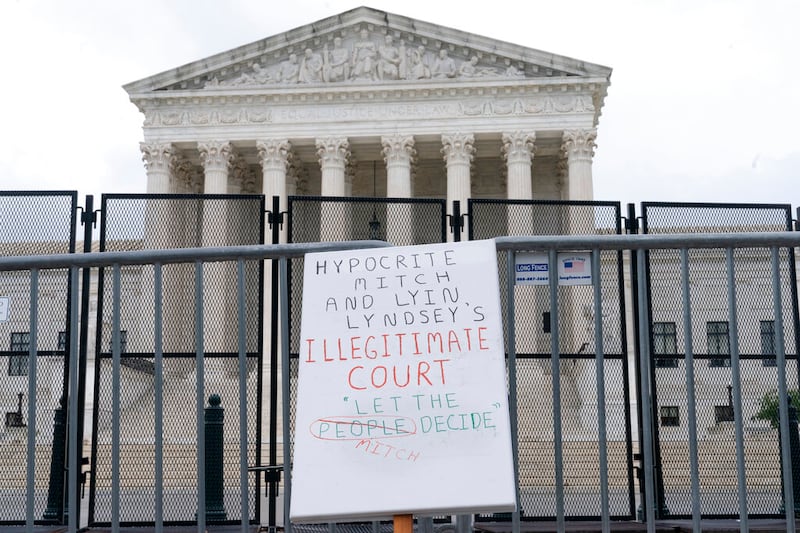 EQUAL JUSTICE UNDER LAW
LONG FENCE
HYPOCRITE
MITCH
AND LYIN,
LYNDSEY'S
ILLEGITIMATE
COURT
"LET THE
PEOPLE DECIDE"
MITCH